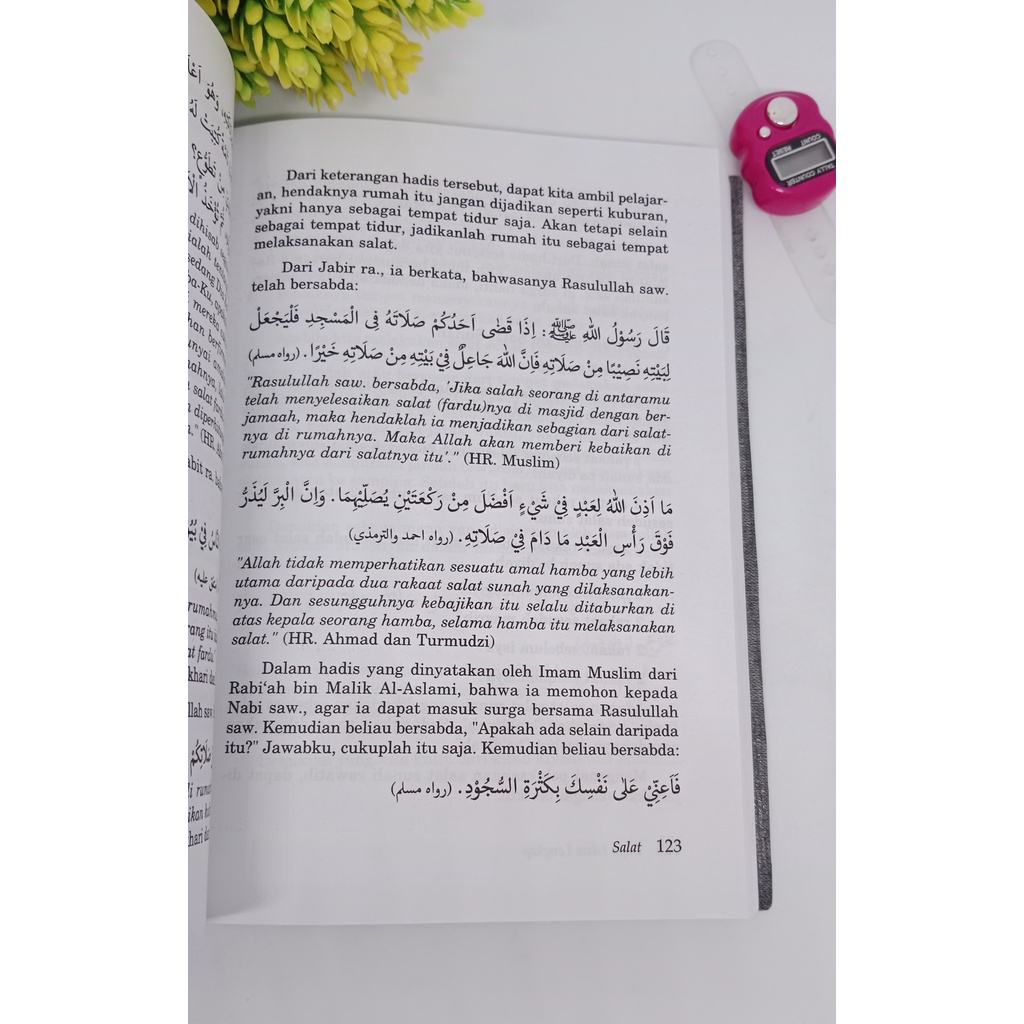 Dari keterangan hadis tersebut, dapat kita ambil pelajar-
an, hendaknya rumah itu jangan dijadikan seperti kuburan,
yakni hanya sebagai tempat tidur saja. Akan tetapi selain
sebagai tempat tidur, jadikanlah rumah itu sebagai tempat
melaksanakan salat.
Dari Jabir ra., ia berkata, bahwasanya Rasulullah saw.
telah bersabda:
قَالَ رَسُوْلُ اللهِ ﷺ: اِذَا قَضٰى اَحَدُكُمْ صَلَاتَهُ فِى الْمَسْجِدِ فَلْيَجْعَلْ
لِبَيْتِهِ نَصِيْبًا مِنْ صَلَاتِهِ فَاِنَّ اللهَ جَاعِلٌ فِيْ بَيْتِهِ مِنْ صَلَاتِهِ خَيْرًا. (رواه مسلم)
"Rasulullah saw. bersabda, 'Jika salah seorang di antaramu
telah menyelesaikan salat (fardu)nya di masjid dengan ber-
jamaah, maka hendaklah ia menjadikan sebagian dari salat-
nya di rumahnya. Maka Allah akan memberi kebaikan di
rumahnya dari salatnya itu'." (HR. Muslim)
مَا اَذِنَ اللهُ لِعَبْدٍ فِيْ شَيْءٍ اَفْضَلَ مِنْ رَكْعَتَيْنِ يُصَلِّيْهِمَا. وَاِنَّ الْبِرَّ لَيُذَرُّ
فَوْقَ رَأْسِ الْعَبْدِ مَا دَامَ فِيْ صَلَاتِهِ. (رواه احمد والترمذي)
"Allah tidak memperhatikan sesuatu amal hamba yang lebih
utama daripada dua rakaat salat sunah yang dilaksanakan-
nya. Dan sesungguhnya kebajikan itu selalu ditaburkan di
atas kepala seorang hamba, selama hamba itu melaksanakan
salat." (HR. Ahmad dan Turmudzi)
Dalam hadis yang dinyatakan oleh Imam Muslim dari
Rabi'ah bin Malik Al-Aslami, bahwa ia memohon kepada
Nabi saw., agar ia dapat masuk surga bersama Rasulullah
saw. Kemudian beliau bersabda, "Apakah ada selain daripada
itu?" Jawabku, cukuplah itu saja. Kemudian beliau bersabda:
فَاَعِنِّيْ عَلٰى نَفْسِكَ بِكَثْرَةِ السُّجُوْدِ. (رواه مسلم)
Salat 123
TALLY COUNTER
COUNT
RESET